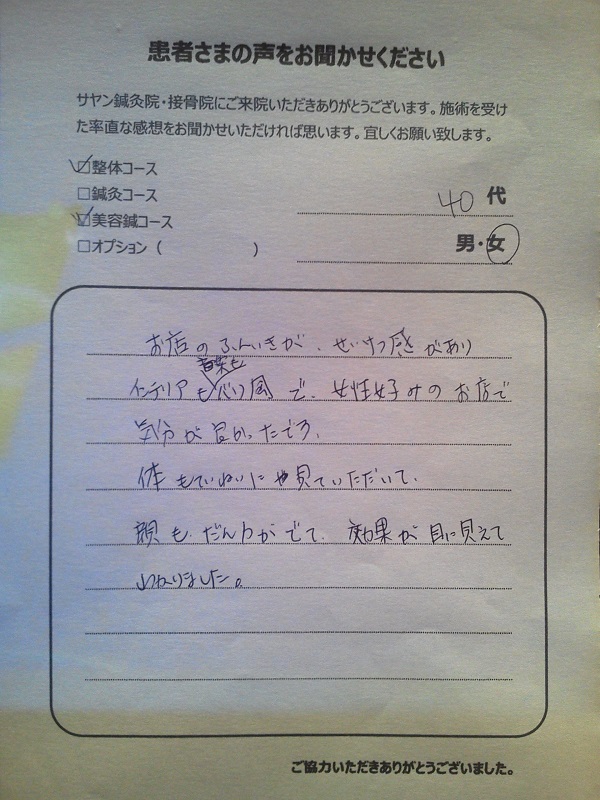 患者さまの声をお聞かせください
サヤン鍼灸院・接骨院にご来院いただきありがとうございます。施術を受け
た率直な感想をお聞かせいただければ思います。宜しくお願い致します。
☑整体コース
□鍼灸コース
☑美容鍼コース
□オプション（　　　　　　）
40 代
男・女
お店のふんいきが、せいけつ感があり
音楽も
インテリアもバリ風で、女性好みのお店で
気分が良かったです。
体もていねいに見ていただいて、
顔も、だん力がでて、効果が目に見えて
わかりました。
ご協力いただきありがとうございました。